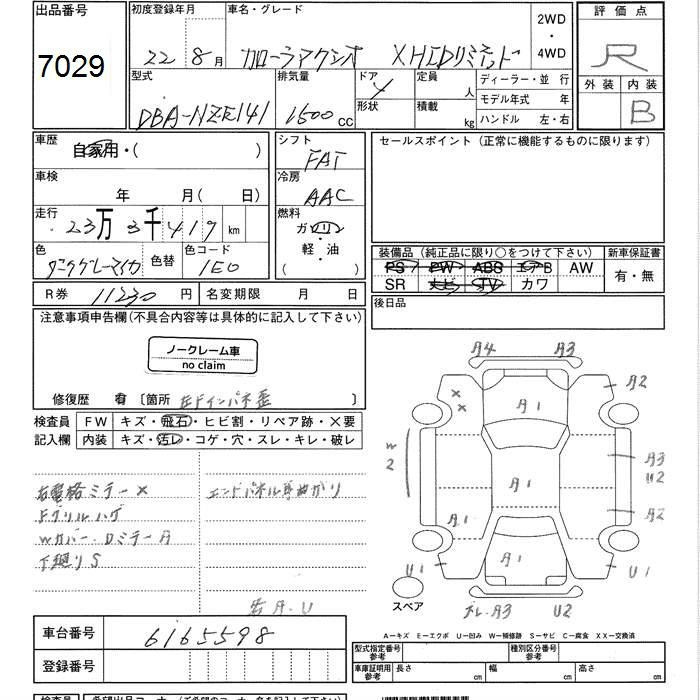 出品番号 初度登録年月 車名・グレード 2WD・4WD 評価点
7029 22年8月 カローラアクシオ XHIDリミテッド R
型式 排気量 ドア 4 定員 人 ディーラー・並行 外装 内装
DBA-NZE141 1500cc 形状 積載 kg モデル年式 年 B
ハンドル 左・右
車歴 自家用・( ) シフト FAT セールスポイント (正常に機能するものに限ります)
車検 年 月( 日) 冷房 AAC
走行 23万3千419km 燃料 ガソリン・軽・油 ( )
色 ダークグレーマイカ 色替 色コード 1E0
装備品 (純正品に限り○をつけて下さい) 新車保証書
PS PW ABS エアB AW 有・無
SR ナビ TV カワ
R券 11230円 名変期限 月 日 後日品
注意事項申告欄(不具合内容等は具体的に記入して下さい)
ノークレーム車
no claim
修復歴 有 〔箇所 左Fインパネ歪 〕
検査員 FW キズ・飛石・ヒビ割・リペア跡・×要
記入欄 内装 キズ・汚レ・コゲ・穴・スレ・キレ・破レ
右電格ミラー× エンドパネル 曲がり
Fグリルハゲ
Wカバー・DミラーA
下廻りS
A4 A3
A2
× ×
A1
W2
A3
U2
A1
A1
A2
A1
U1 U1
A3 U2
スペア
車台番号 6165598
登録番号
A-キズ E-エクボ U-凹み W-補修跡 S-サビ C-腐食 XX-交換済
型式指定番号 参考 種別区分番号 参考
車庫証明用 参考 長さ cm 幅 cm 高さ cm